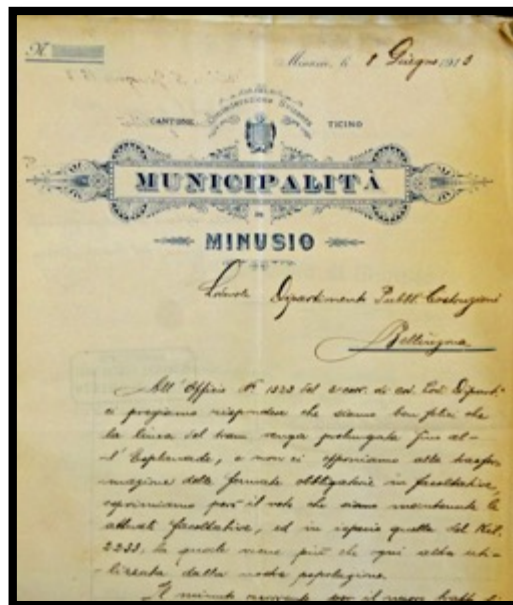 N
Minusio, li 8 Giugno 1913
CONFEDERAZIONE SVIZZERA
CANTONE TICINO
MUNICIPALITÀ
DI
MINUSIO
Lodevole Dipartimento Pubbl. Costruzioni
Bellinzona
All' Officio N° 1323 del 2 corr. di cod. Lod. Dipart.
ci pregiamo rispondere che siamo ben felici che
la linea del tram venga prolungata fino al-
l' Esplanade, e non ci opponiamo alla trasfor-
mazione delle fermate obbligatorie in facoltative,
esprimiamo però il voto che siano mantenute le
attuali facoltative, ed in ispecie quella del Kil.
2233, la quale viene più che ogni altra uti-
lizzata dalla nostra popolazione.
Il minuto occorrente per il nuovo tratto si